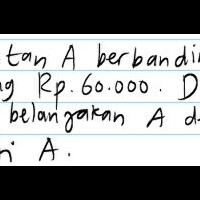 tan A berbandi
g Rp. 60.000. D
belanjakan A d
i A.